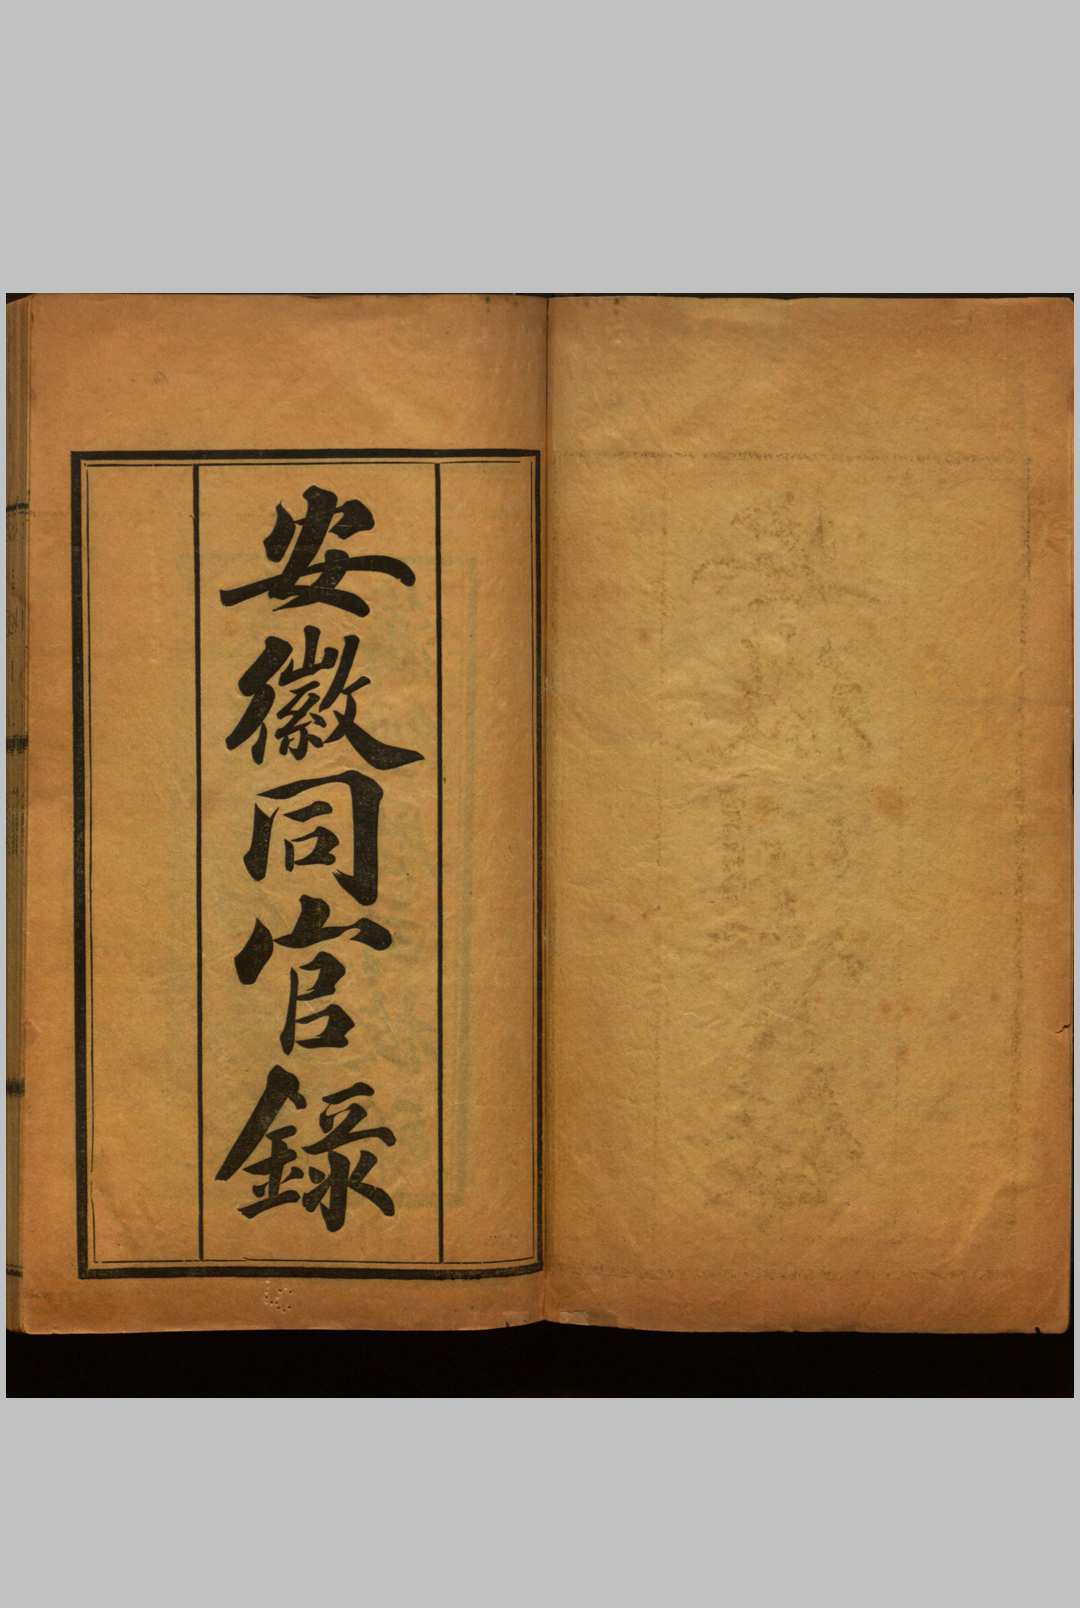 安徽同官錄